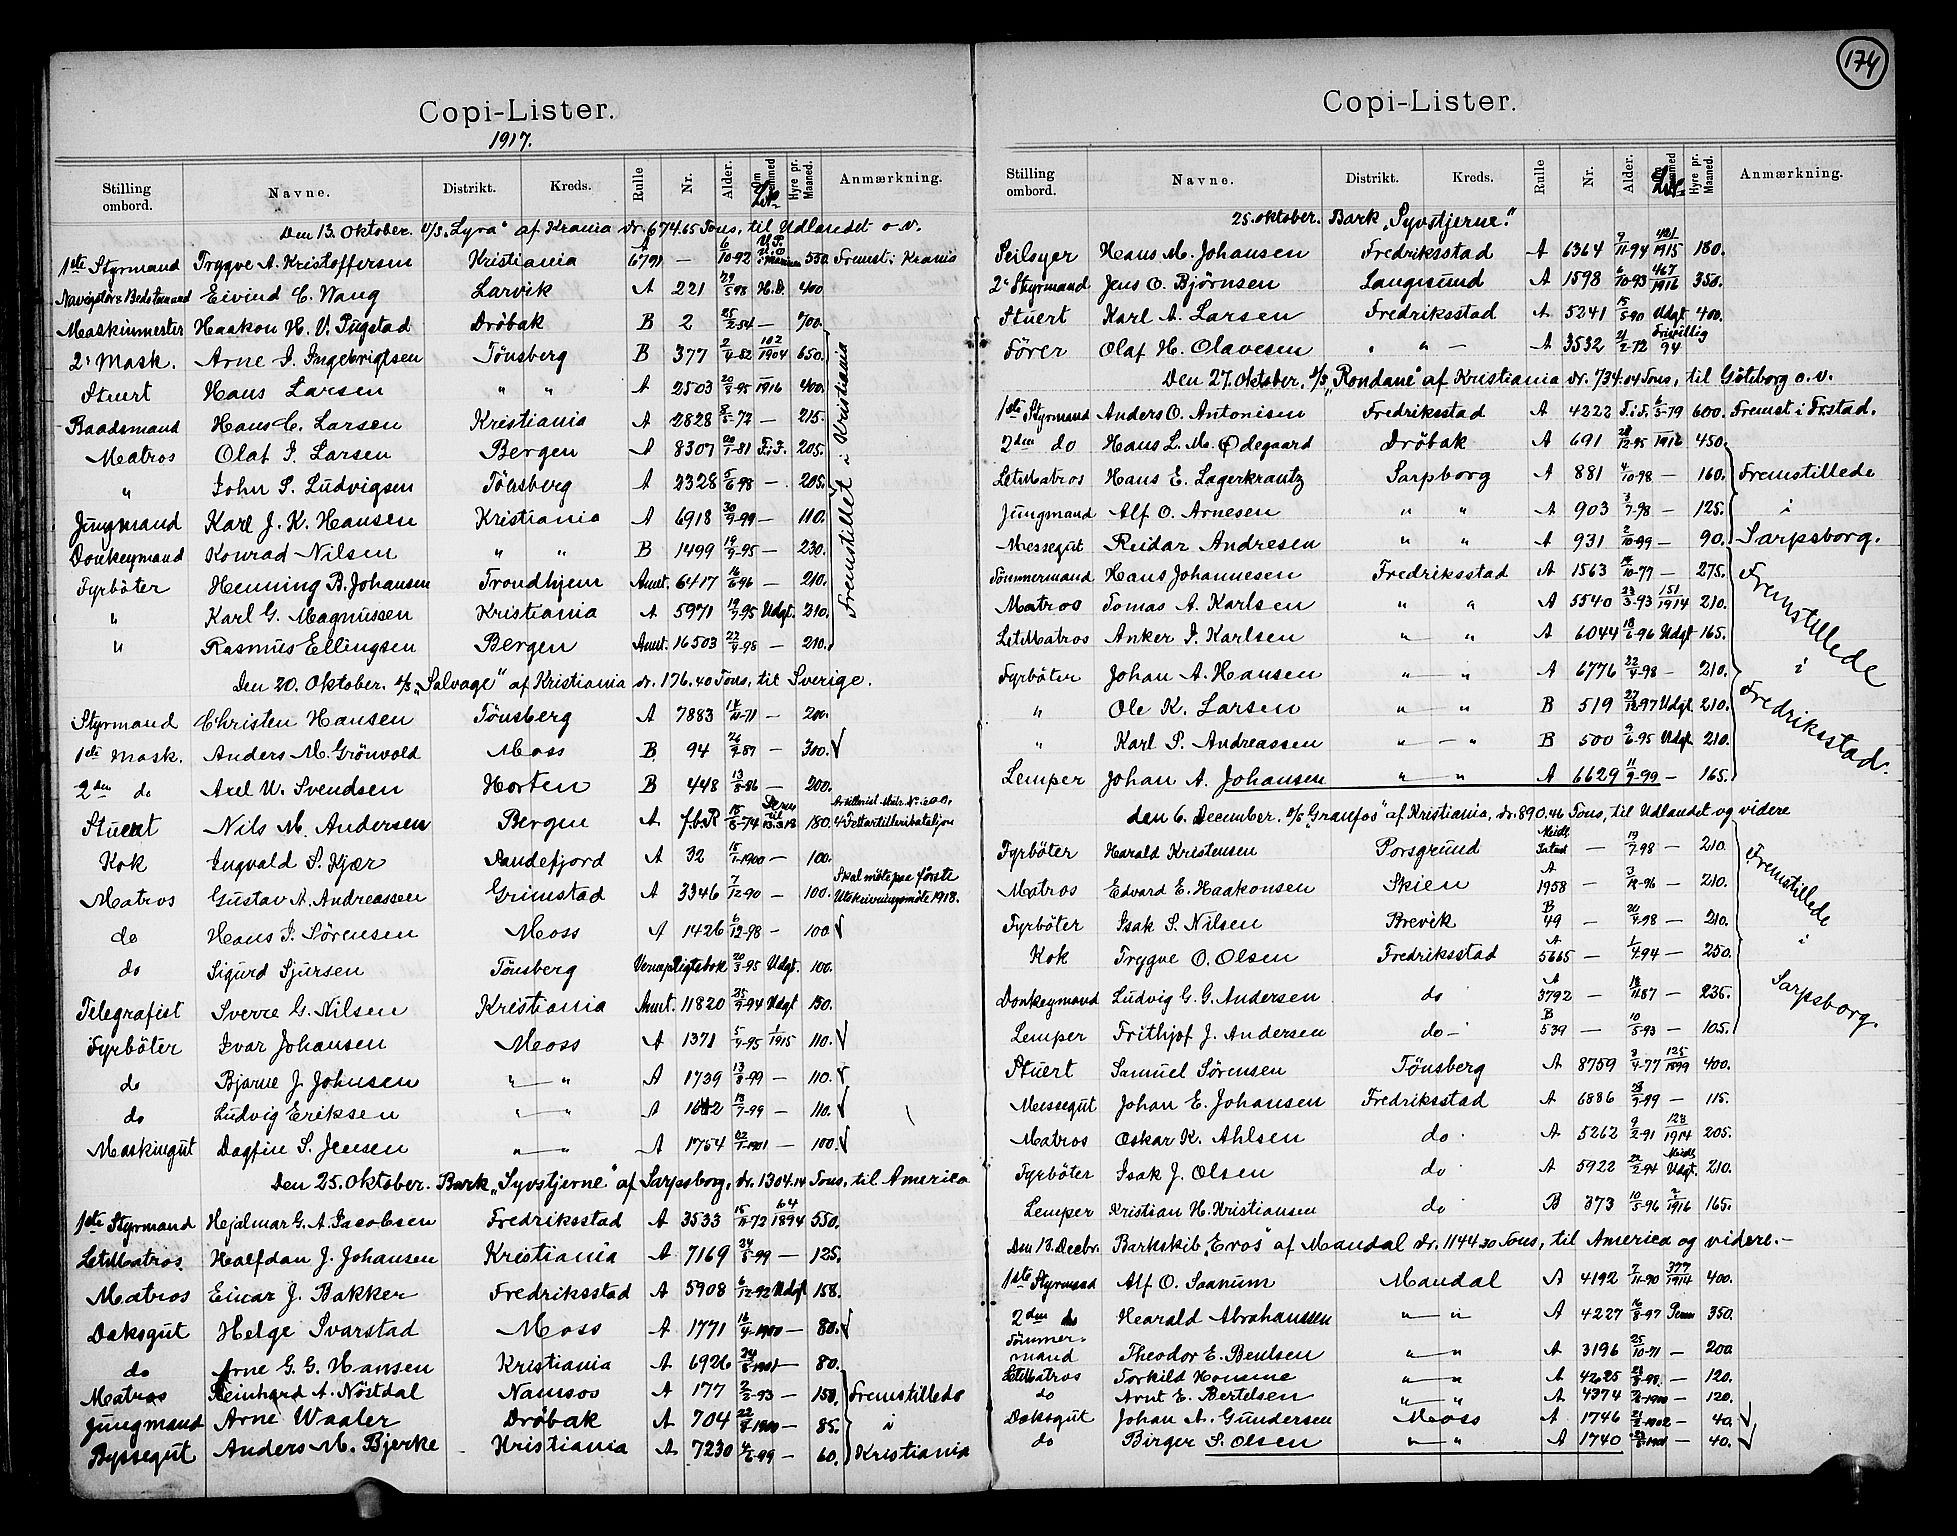 Copi-Lister.
1917.
Stilling ombord. Navne. Distrikt. Kreds. Rulle Nr. Alder. Hyre pr. Maaned. Anmærkning.
Den 13. Oktober. S/S "Lyra" af Krania dr. 674.65 Tons, til Udlandet o.v.
1ste Styrmand Trygve A. Kristoffersen Kristiania A 6791 — 6/10-92 550. Fremst. i Krania
Eivind C. Wang Larvik A 221 29/5-98 400
Maskinmester Haakon H. V. Pugstad Dröbak B 2 25/2-54 — 700.
2. Mask. Arne I. Ingebrigtsen Tönsberg B 377 2/4-82 102/1904 650.
Stuert Hans Larsen " " A 2503 20/9-95 1916 400.
Baadsmand Hans C. Larsen Kristiania A 2828 8/5-72 — 215.
Matros Olaf I. Larsen Bergen A 8307 20/7-81 F.i.F. 205.
" John S. Ludvigsen Tönsberg A 2328 5/6-98 — 205.
Jungmand Karl J. K. Hansen Kristiania A 6918 30/9-99 — 110.
Donkeymand Konrad Nilsen " " B 1499 19/9-95 — 230.
Fyrböter Henning B. Johansen Trondhjem Anet. 6417 16/6-96 — 210.
" Karl G. Magnussen Kristiania A 5971 19/9-95 Udgt. 210.
" Rasmus Ellingsen Bergen Anet. 16503 22/9-98 — 210.
Fremstillet i Kristiania
Den 20. Oktober. S/S "Salvage" af Kristiania dr. 176.40 Tons, til Sverige.
Styrmand Christen Hansen Tönsberg A 7883 14/11-71 — 200.
1ste Mask. Anders M. Grönvold Moss B 94 26/9-87 — 300.
2den do Axel W. Svendsen Horten B 448 13/5-86 — 200.
Stuert Nils M. Andersen Bergen A f.b.R 15/8-74 180.
Kok Ingvald S. Kjær Sandefjord A 32 15/1-1900 — 100.
Matros Gustav A. Andreassen Grimstad A 3346 7/12-90 — 100. Skal möte paa förste Utskrivningsmöte 1918.
do Hans I. Sörensen Moss A 1426 6/12-98 — 100
do Sigurd Sjursen Tönsberg Vernepligtsbok 20/3-95 Udgt. 100.
Telegrafist Sverre G. Nilsen Kristiania Anet. 11820 25/9-94 Udgt 150.
Fyrböter Ivar Johansen Moss A 1371 5/9-95 1/1915 110.
do Bjarne J. Johnsen " — " A 1739 13/8-99 — 110.
do Ludvig Eriksen " — " A 13/7-99 — 110.
Maskingut Dagfin S. Jensen " — " A 1754 22/1-1901 — 100.
Den 25. Oktober. Bark "Syvstjerne" af Sarpsborg, dr. 1304.14 Tons, til America
1ste Styrmand Hejalmar G. A. Jacobsen Fredriksstad A 3533 15/11-72 64/1894 550.
LetMatros. Halfdan J. Johansen Kristiania A 7169 24/5-99 — 125.
Matros Einar J. Bakker Fredriksstad A 5908 6/12-92 Udgt 158.
Daksgut Helge Svarstad Moss A 1771 16/4-1900 — 80.
do Arne G. G. Hansen Kristiania A 6926 24/8-1901 — 80.
Matros Reinhard A. Nöstdal Namsos A 177 2/3-93 — 150. Fremstillede
Jungmand Arne Waaler Dröbak A 704 22/8-1900 — 85. i
Byssegut Anders M. Bjerke Kristiania A 7230 4/6-99 — 60. Kristiania
174
Copi-Lister.
Stilling ombord. Navne. Distrikt. Kreds. Rulle Nr. Alder. Hyre pr. Maaned. Anmærkning.
25. oktober. Bark "Syvstjerne"
Seilsyer Hans M. Johansen Fredriksstad A 6364 9/11-94 421/1915 180.
2. Styrmand Jens O. Björnsen Langesund A 1598 6/10-93 467/1916 350.
Stuert Karl A. Larsen Fredriksstad A 5241 15/5-90 Udgt 400.
Förer Olaf H. Olavesen " " — A 3532 21/2-72 Frivillig 94
Den 27. Oktober. S/S "Rondane" af Kristiania dr. 734.04 Tons, til Göteborg o.v.
1ste Styrmand Anders O. Antonisen Fredriksstad A 4222 F.i.F. 6/5-79 600. Fremst i Frstad.
2den do Hans L. M. Ödegaard Dröbak A 691 28/12-95 1916 450.
LetMatros Hans E. Lagerkrantz Sarpborg A 881 4/10-98 — 160. Fremstillede
Jungmand Alf O. Arnesen " " A 903 3/7-98 — 125. i
Messegut Reidar Andresen " " A 931 2/10-99 — 90. Sarpsborg.
Tömmermand Hans Johannesen Fredriksstad A 1563 14/10-77 — 275.
Matros Tomas A. Karlsen " " A 5540 23/3-93 151/1914 210.
LetMatros Anker I. Karlsen " — " A 6044 18/6-96 Udgt 165.
Fyrböter Johan A. Hansen " — " A 6776 22/4-98 — 210.
" Ole K. Larsen " — " B 519 27/12-97 Udgt. 210.
" Karl P. Andreassen " — " B 500 9/6-95 Udgt. 210.
Lemper Johan A. Johansen " — " A 6629 11/9-99 — 165.
Fremstillede i Fredriksstad.
den 6. December. S/S "Granfos" af Kristiania, dr. 890.46 Tons, til Udlandet og videre
Fyrböter Harald Kristensen Porsgrund — 19/7-98 — 210.
Matros Edvard E. Haakonsen Skien A 1958 — 3/12-96 — 210.
Fyrböter Isak S. Nilsen Brevik B 49 — 20/9-98 — 210.
Kok Trygve O. Olsen Fredriksstad A 5665 — 1/4-94 — 250.
Donkeymand Ludvig G. G. Andersen do A 3792 — 18/11-87 — 235.
Lemper Frithjof J. Andersen do — B 539 — 10/5-93 — 105.
Fremstillede i Sarpsborg.
Stuert Samuel Sörensen Tönsberg A 8759 3/4-77 125/1899 400.
Messegut Johan E. Johansen Fredriksstad A 6886 23/9-99 — 115.
Matros Oskar K. Ahlsen do A 5262 9/2-91 123/1914 205.
Fyrböter Isak J. Olsen do A 5922 22/2-94 Udgt. 210.
Lemper Kristian H. Kristiansen do B 373 10/5-96 2/1916 165.
Den 13. Decbr. Barkskib "Eros" af Mandal dr. 1144.30 Tons, til America og videre. —
1ste Styrmand Alf O. Saanum Mandal A 4192 7/11-90 377/1914 400.
2den do Hearald Abrahamsen " — " A 4227 16/8-97 350.
Tömmermand Theodor E. Bentsen " — " A 3196 25/10-71 — 200
LetMatros Torkild Homme " — " A 4625 23/8-98. — 120.
do Arnt E. Bertelsen " — " A 4374 — 120.
Daksgut Johan A. Gundersen Moss A 1746 21/2-1902 — 40.
do Birger S. Olsen " — " A 1740 — 40.